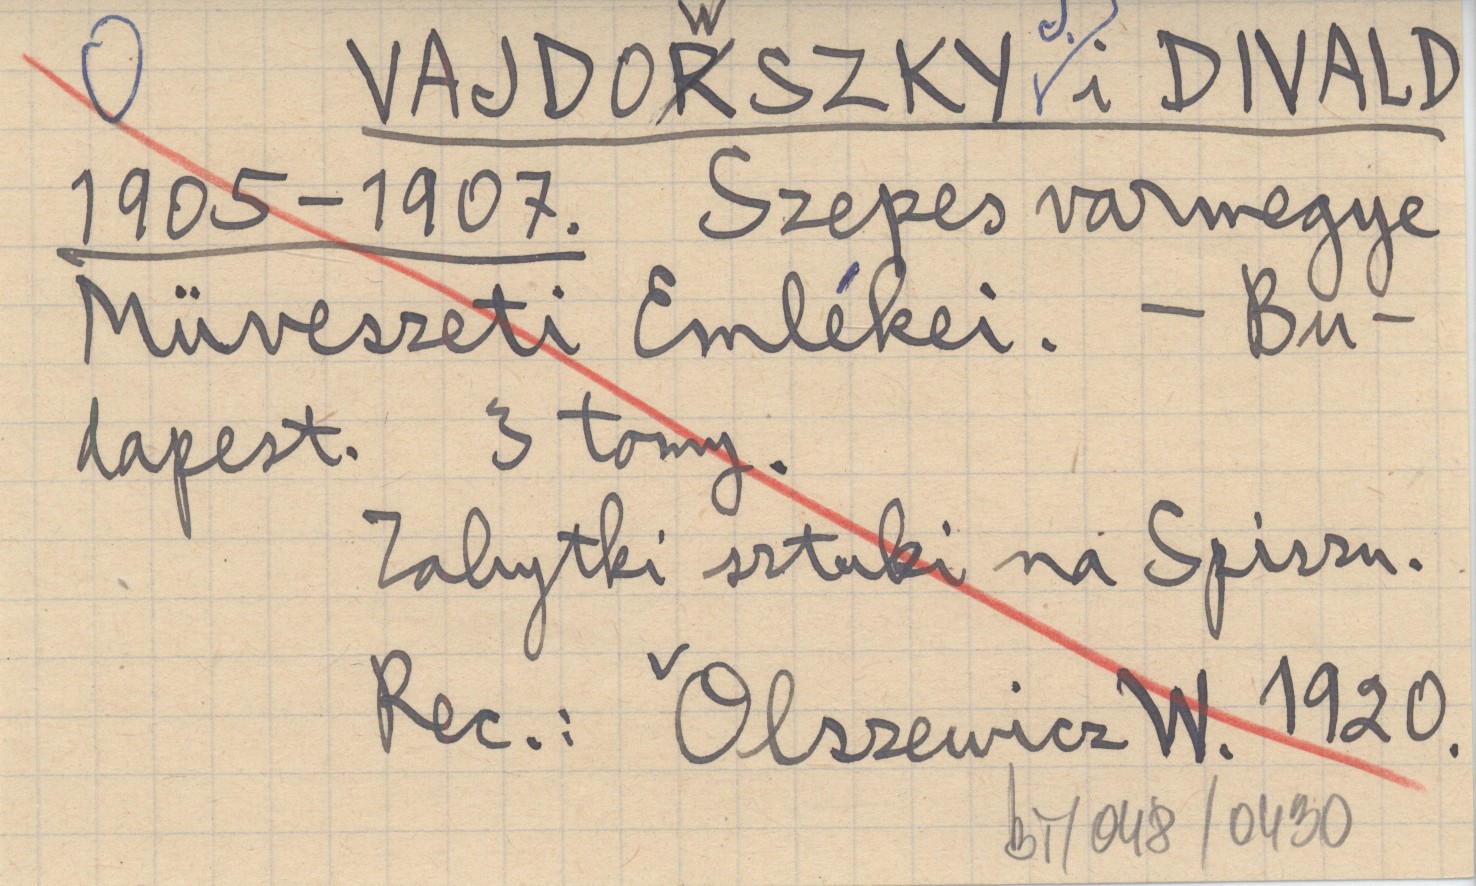 VAJDOWSZKY J. i DIVALD
1905-1907. Szepes varmegye
Müveszeti Emlékei. - Bu-
dapest. 3 tomy.
Zabytki sztuki na Spiszu.
Rec.: Olszewicz W. 1920.
BT/048/0430